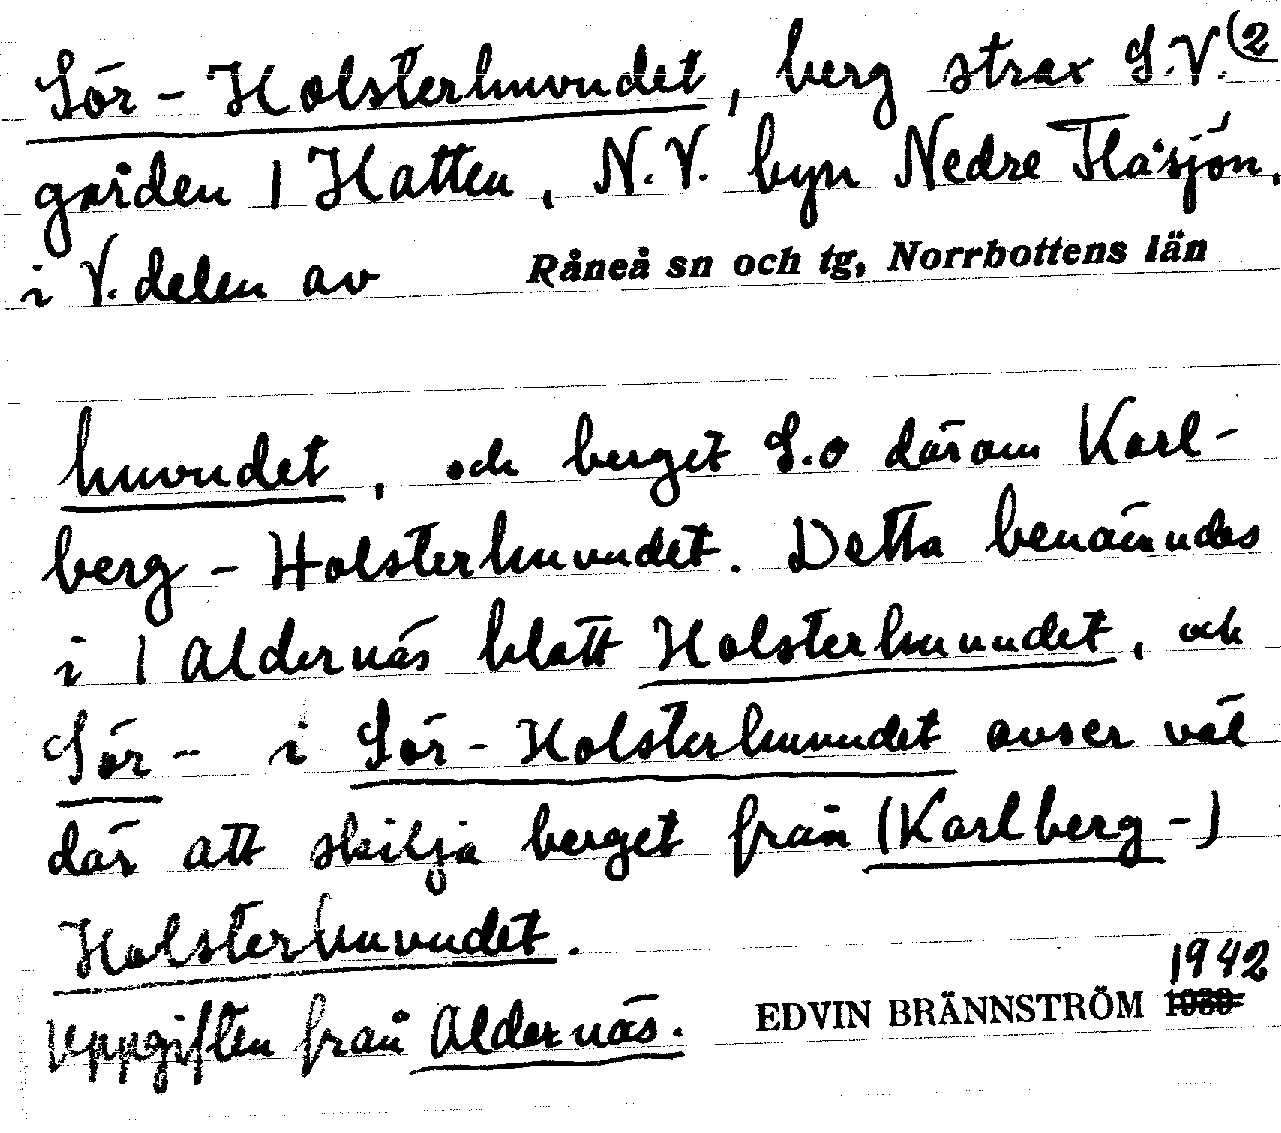 Sör-Holsterhuvudet, berg strax S.V. (2
gården 1 Hatten, N.V. byn Nedre Flåsjön,
i V. delen av Råneå sn och tg, Norrbottens län
huvudet, och berget S.o därom Karl-
berg-Holsterhuvudet. Detta benämndes
i 1 Aldernäs blott Holsterhuvudet, och
Sör- i Sör-Holsterhuvudet avser väl
där att skilja berget från (Karlberg-)
Holsterhuvudet.
1942
Uppgiften från Aldernäs. EDVIN BRÄNNSTRÖM 1939